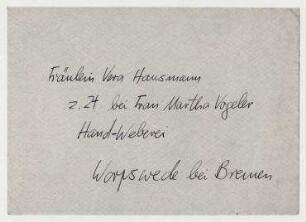 Fräulein Vera Hausmann
z. Zt bei Frau Martha Vogeler
Hand-Weberei
Worpswede bei Bremen